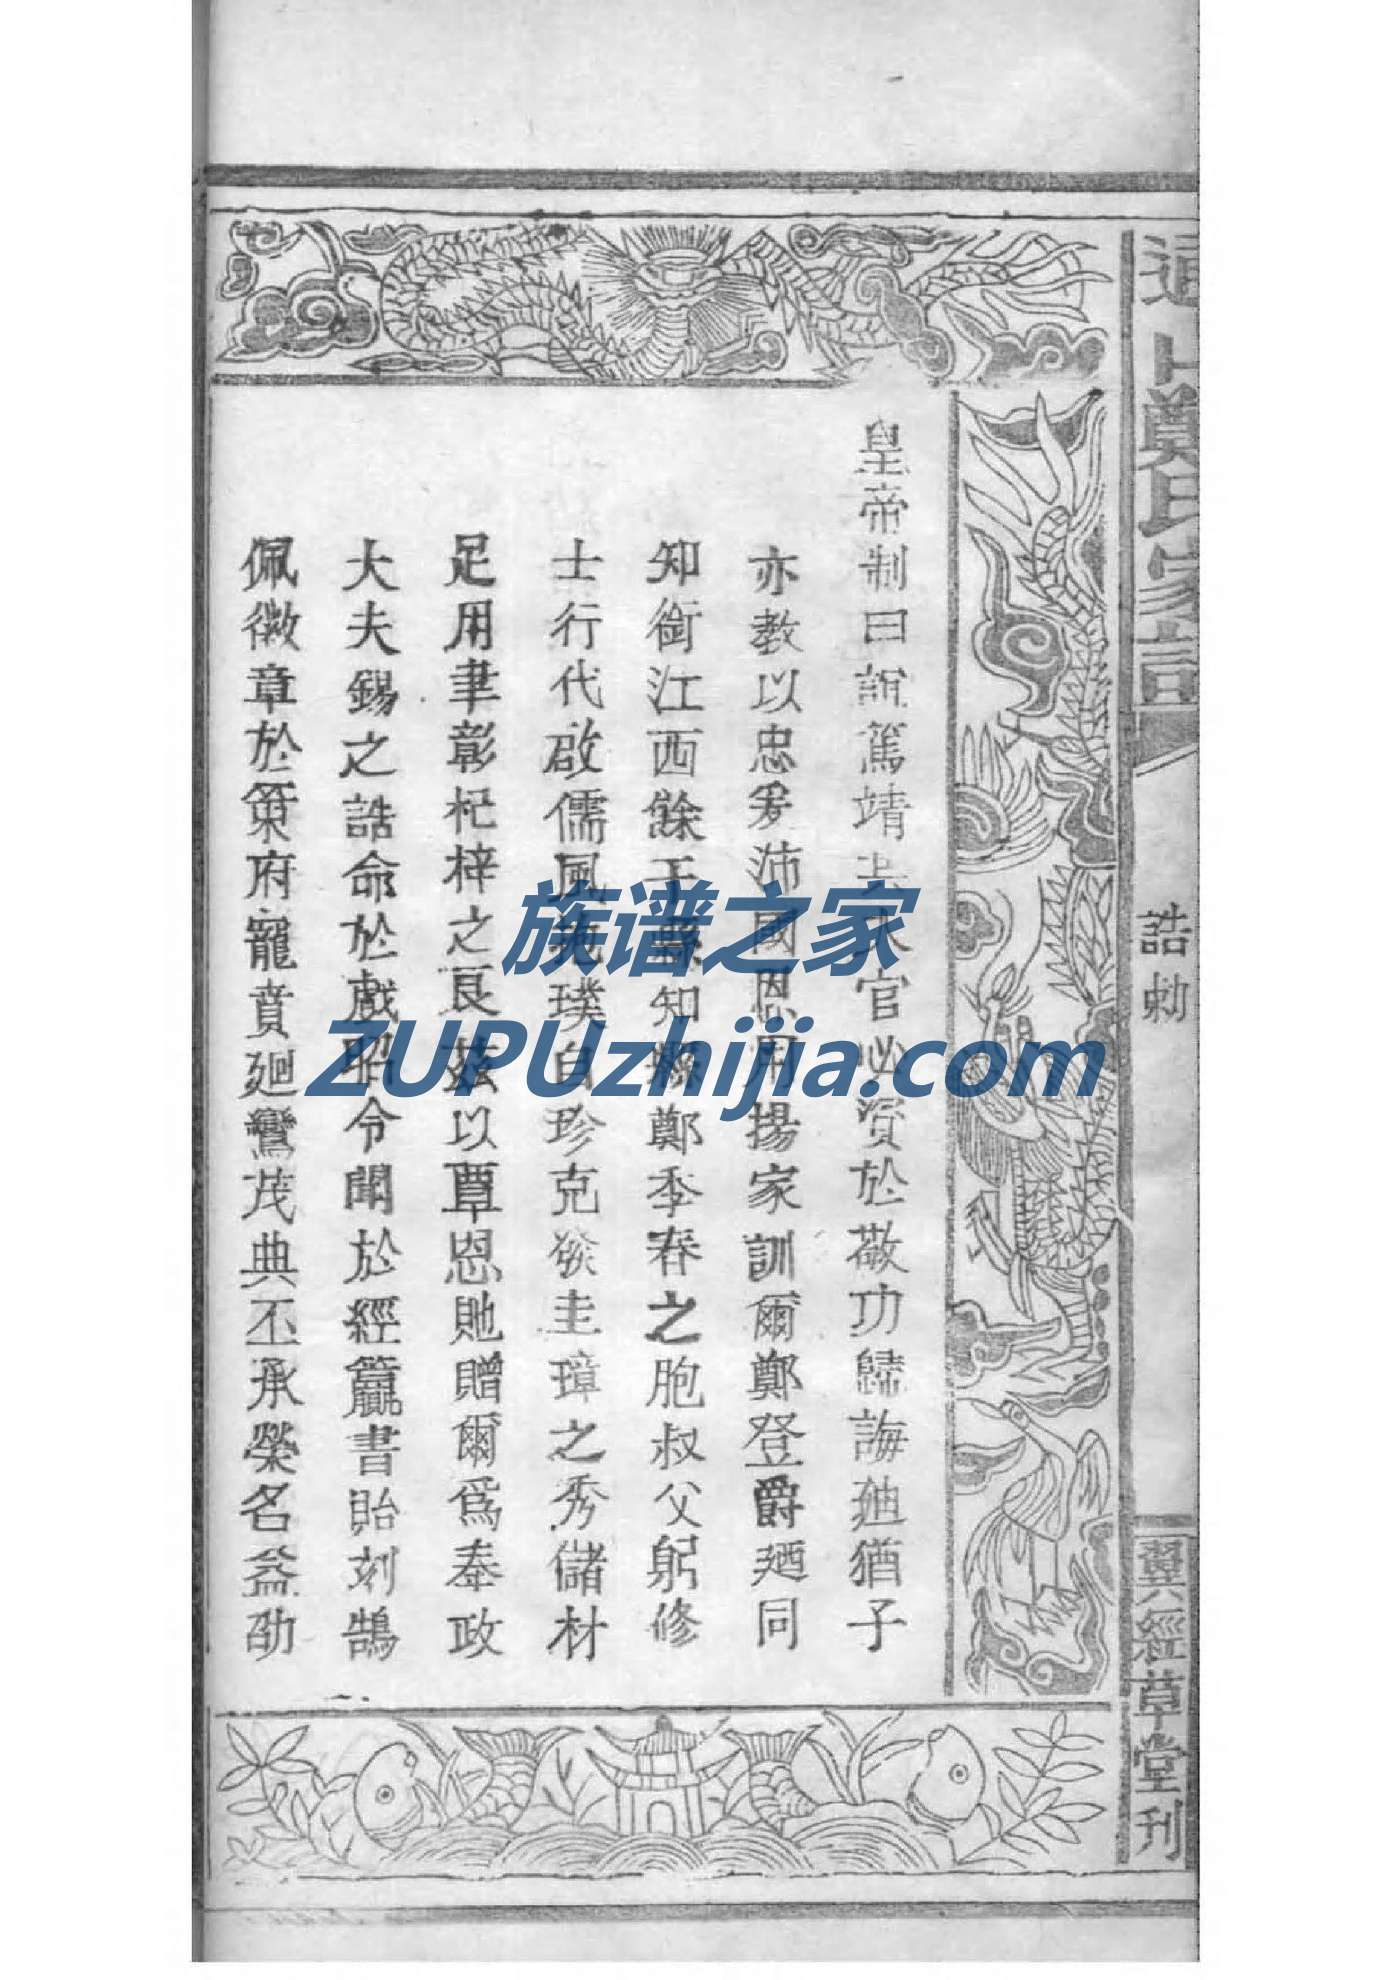 通山鄭氏家譜
誥勅
翼經草堂刊
皇帝制曰誼篤靖共入官必資於敬功歸誨廸猶子
亦教以忠爰沛國恩用揚家訓爾鄭登爵廼同
知銜江西餘干縣知縣鄭季春之胞叔父躬修
士行代啟儒風抱璞自珍克發圭璋之秀儲材
足用聿彰杞梓之良兹以覃恩貤贈爾爲奉政
大夫錫之誥命於戲昭令聞於經籯書貽刻鵠
佩徽章於策府寵賁廻鸞茂典丕承榮名益劭
族谱之家
ZUPUzhijia.com